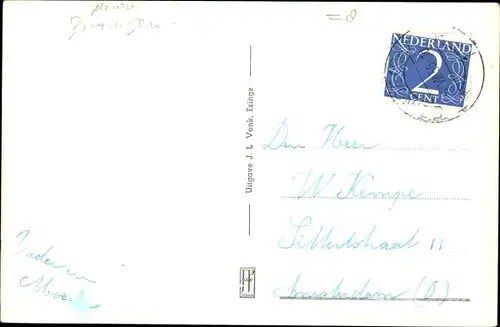 = 0
NEDERLAND
2
CENT
Uitgave J. L. Vonk, Ezinge
Den Heer
W Kempe
Sittertstraat 11
Amsterdam (O)
Vader en
Moe